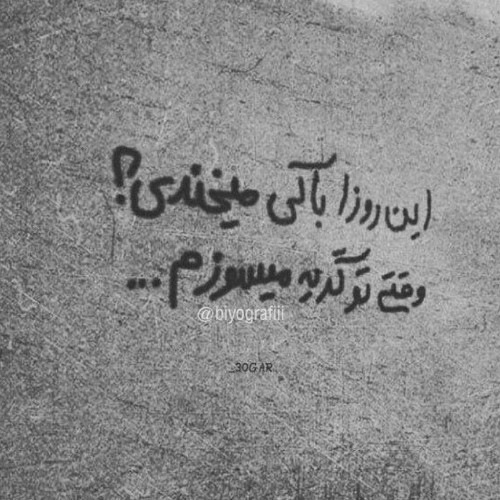 این روزا با کی میخندی؟
وقتی تو گریه میسوزم ...
@biyografiii
_3OGAR_